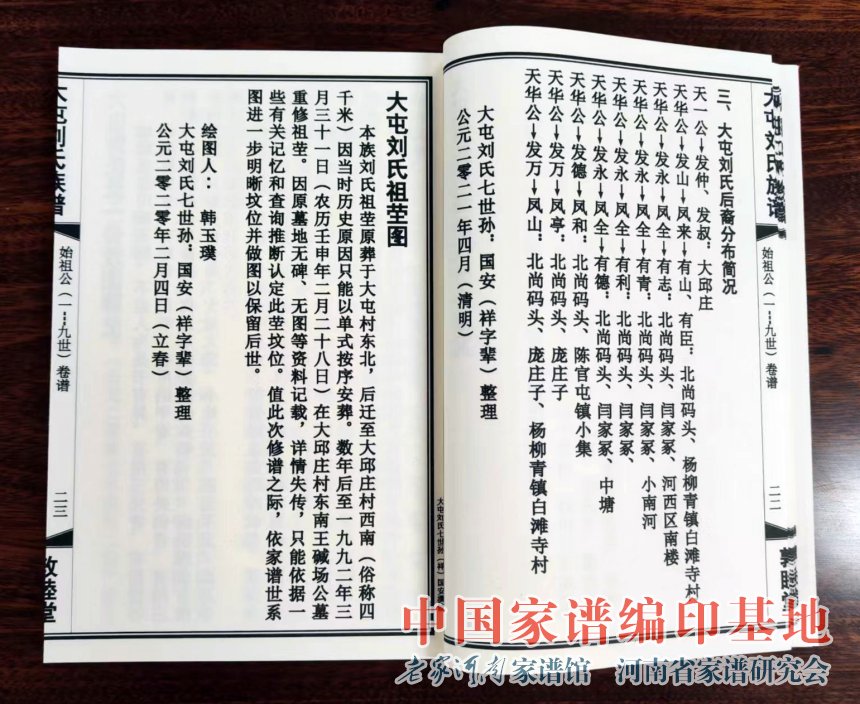 大屯刘氏族谱
始祖公（一---九世）卷谱
二二
三、大屯刘氏后裔分布简况
天一公→发仲、发叔：大邱庄
天华公→发山→凤来→有山、有臣：北尚码头、杨柳青镇白滩寺村
天华公→发永→凤全→有志：北尚码头、闫家冢、河西区南楼
天华公→发永→凤全→有青：北尚码头、闫家冢、小南河
天华公→发永→凤全→有利：北尚码头、闫家冢、
天华公→发永→凤全→有德：北尚码头、闫家冢、中塘
天华公→发德→凤和：北尚码头、陈官屯镇小集
天华公→发万→凤亭：北尚码头、庞庄子
天华公→发万→凤山：北尚码头、庞庄子、杨柳青镇白滩寺村
大屯刘氏七世孙：国安（祥字辈）整理
公元二零二一年四月（清明）
大屯刘氏七世孙（祥）国安
大屯刘氏祖茔图
本族刘氏祖茔原葬于大屯村东北，后迁至大邱庄村西南（俗称四
千米）因当时历史原因只能以单式按序安葬。数年后至一九九二年三
月三十一日（农历壬申年二月二十八日）在大邱庄村东南王碱场公墓
重修祖茔。因原墓地无碑、无图等资料记载，详情失传，只能依据一
些有关记忆和查询推断认定此茔坟位。值此次修谱之际，依家谱世系
图进一步明晰坟位并做图以保留后世。
绘图人：韩玉璞
大屯刘氏七世孙：国安（祥字辈）整理
公元二零二零年二月四日（立春）
大屯刘氏族谱
始祖公（一---九世）卷谱
二三
敦睦堂
中国家谱编印基地
老家河南家谱馆 河南省家谱研究会